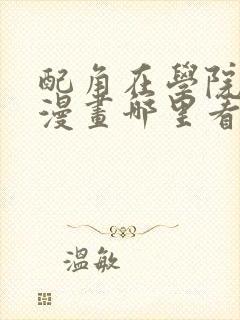 配角在學院
漫畫哪里看
溫敏